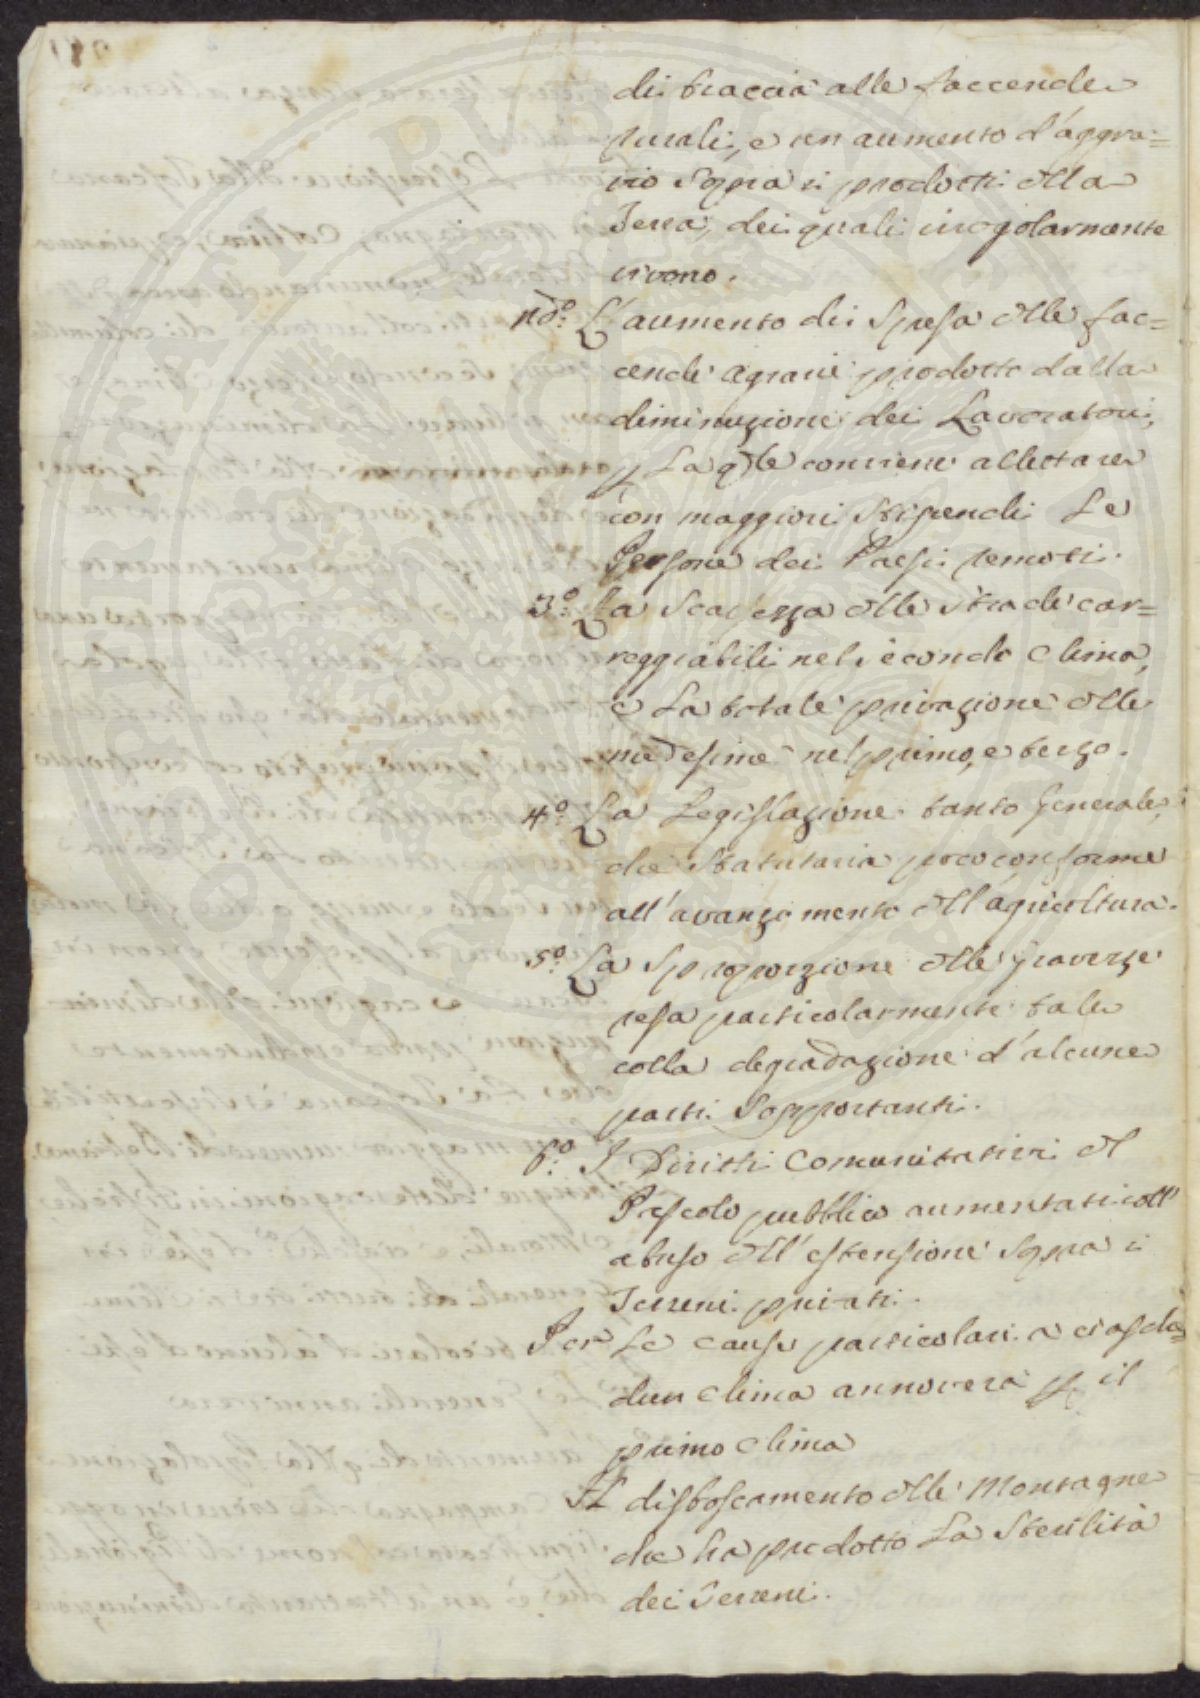 di braccia alle faccende
rurali, e un aumento d'aggra=
vio sopra i prodotti della
Terra, dei quali irregolarmente
vivono.
2do: L'aumento di Spesa delle fac=
cende agrarie prodotto dalla
diminuzione dei Lavoratori,
p La qle conviene allettare
con maggiori Stipendi Le
Persone dei Paesi remoti.
3o: La Scarsezza delle Strade car=
reggiabili nel secondo Clima,
e La totale privazione delle
medesime nel primo, e terzo.
4o: La Legislazione tanto Generale,
che Statutaria poco conforme
all'avanzamento dell'agricoltura.
5o: La Sproporzione delle gravezze
resa particolarmente tale
colla degradazione d'alcune
parti Sopportanti.
6o: I Diritti Comunitativi del
Pascolo pubblico aumentati coll'
abuso dell'estensione Sopra i
Terreni privati.
Per Le cause particolari a ciasche=
dun Clima annovera p il
primo Clima
Il disboscamento delle Montagne
che ha prodotto La Sterilità
dei Terreni.